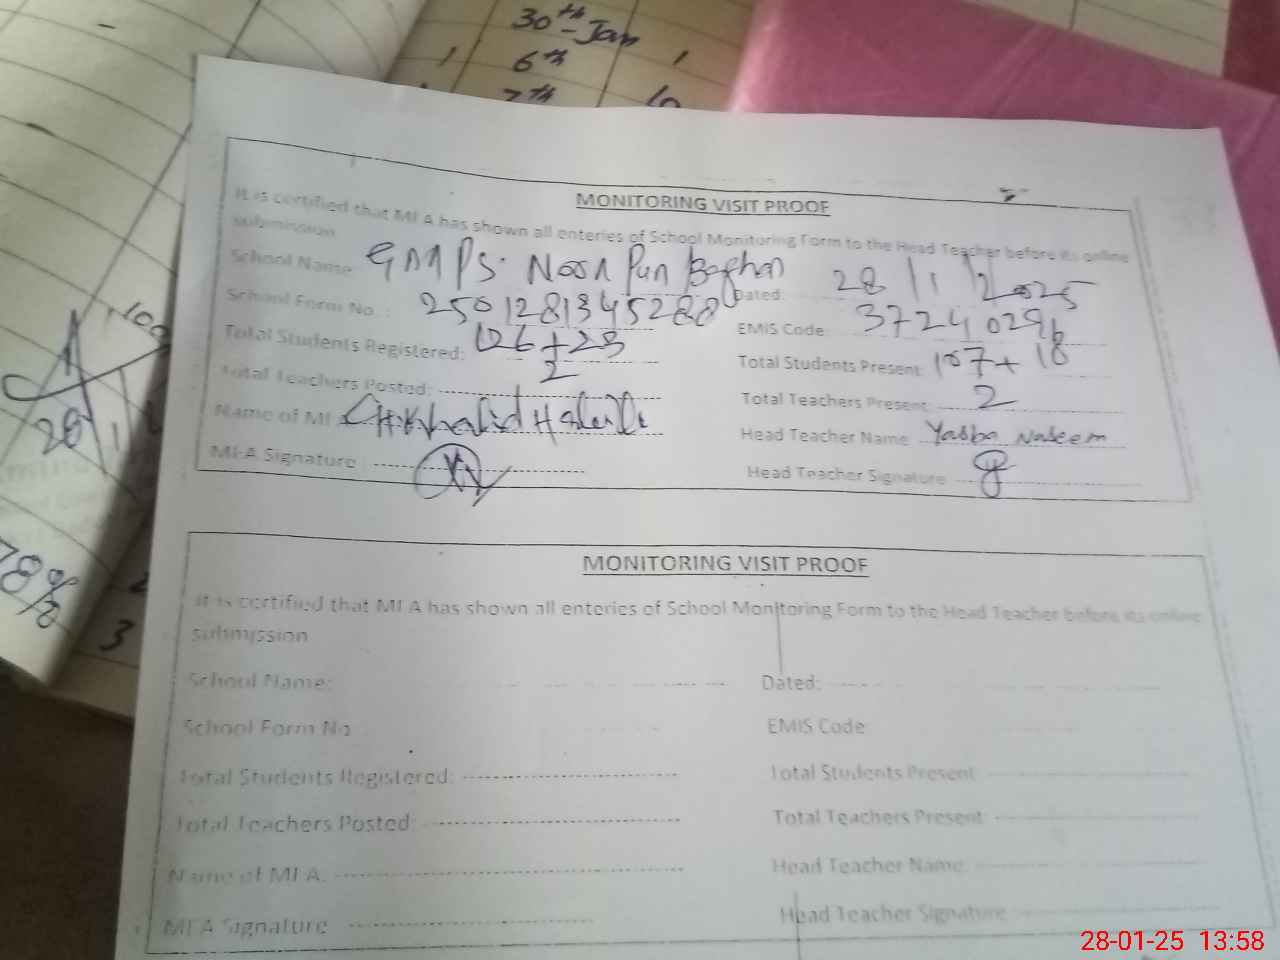 30th-Jan
1 6th 1
7th 10
MONITORING VISIT PROOF
It is certified that MEA has shown all enteries of School Monitoring Form to the Head Teacher before its online
submission
School Name: GMMPS. Noon Pun Dated: 28/1/2025
School Form No.: 2501281345280 EMIS Code: 37240296
Total Students Registered: 126+23 Total Students Present: 107+18
Total Teachers Posted: 2 Total Teachers Present: 2
Name of MEA Ch. Khalid Head Teacher Name Yasba Naleem
MEA Signature Head Teacher Signature
MONITORING VISIT PROOF
It is certified that MEA has shown all enteries of School Monitoring Form to the Head Teacher before its online
submission
School Name: Dated:
School Form No EMIS Code
Total Students Registered: Total Students Present
Total Teachers Posted: Total Teachers Present:
Name of MEA: Head Teacher Name:
MEA Signature Head Teacher Signature
100
28/1
78%
3
28-01-25 13:58